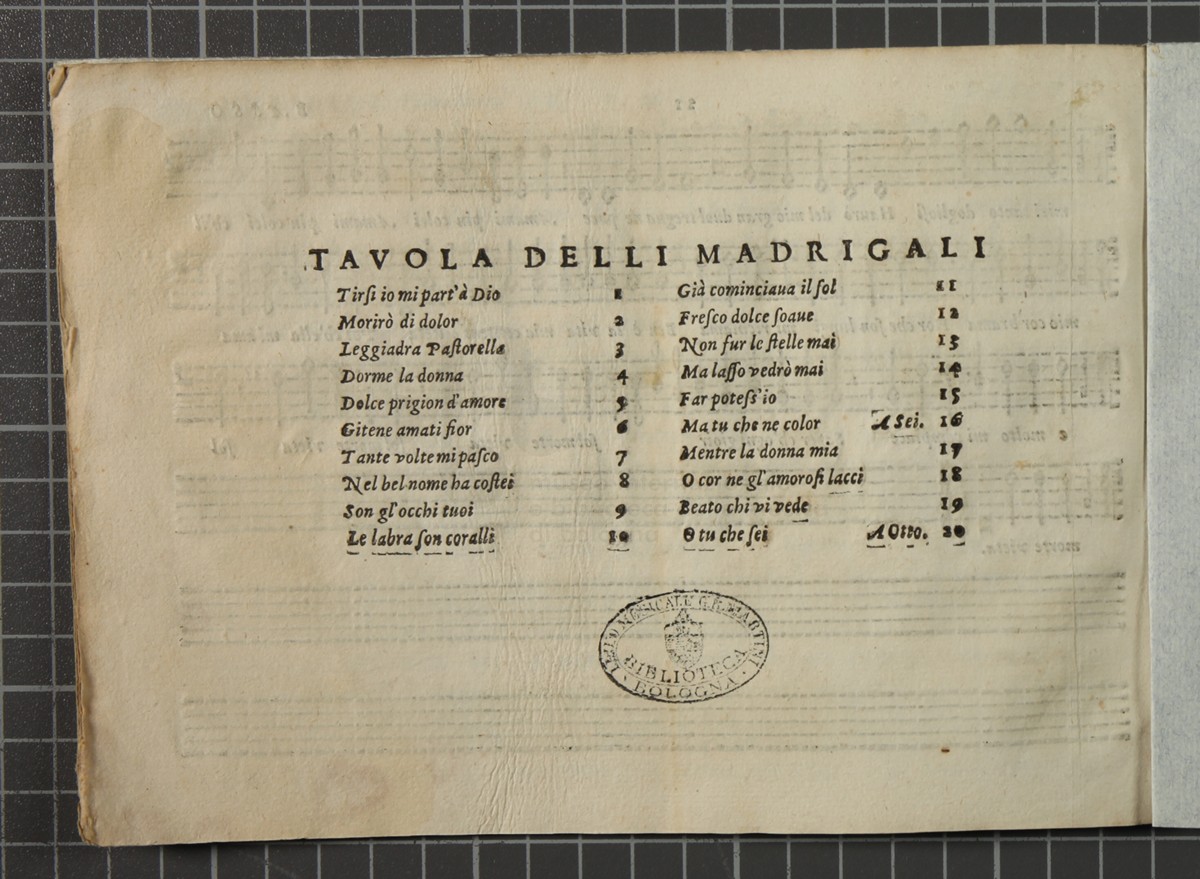 TAVOLA DELLI MADRIGALI
Tirſi io mi part'à Dio 1
Morirò di dolor 2
Leggiadra Paſtorella 3
Dorme la donna 4
Dolce prigion d'amore 5
Gitene amati fior 6
Tante volte mi paſco 7
Nel bel nome ha coſtei 8
Son gl'occhi tuoi 9
Le labra ſon coralli 10
Già cominciaua il ſol 11
Freſco dolce ſoaue 12
Non fur le ſtelle mai 13
Ma laſſo vedrò mai 14
Far poteſs'io 15
Ma tu che ne color A Sei. 16
Mentre la donna mia 17
O cor ne gl'amoroſi lacci 18
Beato chi vi vede 19
O tu che ſei A Otto. 20
MUSICALE G.B. MARTINI
BIBLIOTECA
BOLOGNA